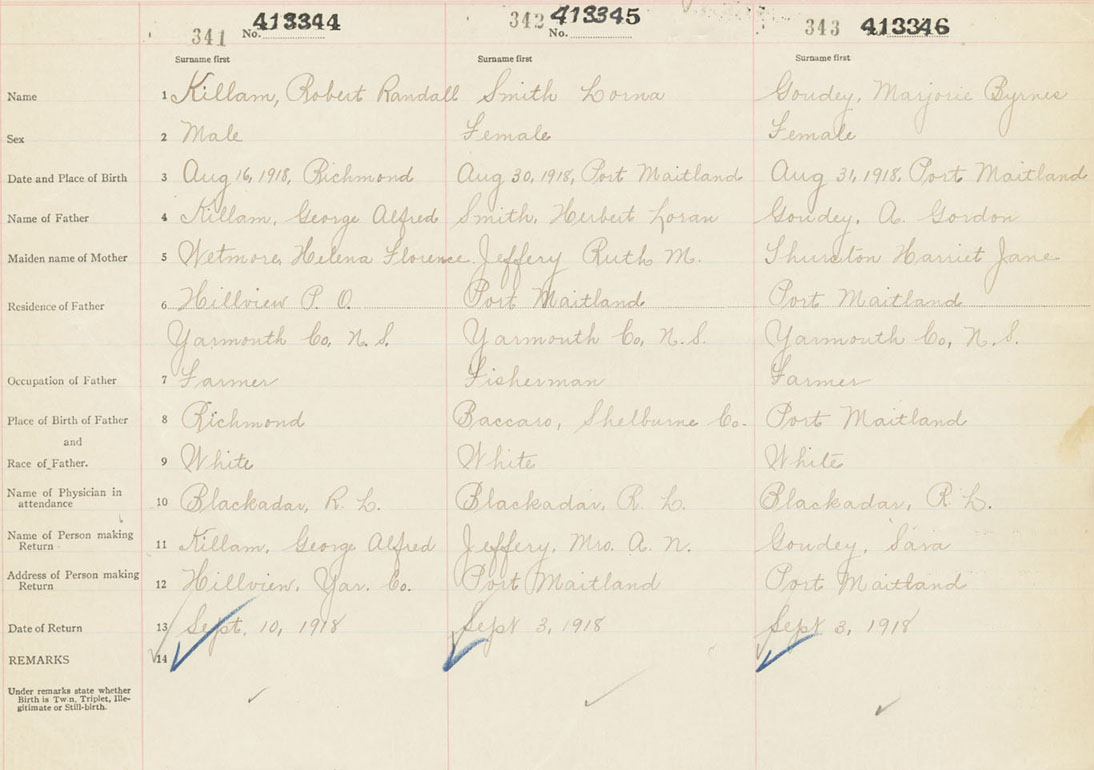 341 No. 413344 342 No. 413345 343 413346
Surname first Surname first Surname first
Name 1 Killam, Robert Randall Smith Lorna Goudey, Marjorie Byrnes
Sex 2 Male Female Female
Date and Place of Birth 3 Aug 16, 1918, Richmond Aug 30, 1918, Port Maitland Aug 31, 1918, Port Maitland
Name of Father 4 Killam, George Alfred Smith, Herbert Loran Goudey, A. Gordon
Maiden name of Mother 5 Wetmore, Helena Florence. Jeffery Ruth M. Thurston Harriet Jane
Residence of Father 6 Hillview P. O. Port Maitland Port Maitland
Yarmouth Co, N. S. Yarmouth Co, N. S. Yarmouth Co, N. S.
Occupation of Father 7 Farmer Fisherman Farmer
Place of Birth of Father 8 Richmond Baccaro, Shelburne Co. Port Maitland
and
Race of Father. 9 White White White
Name of Physician in
attendance 10 Blackadar, R. L. Blackadar, R. L. Blackadar, R. L.
Name of Person making
Return 11 Killam, George Alfred Jeffery, Mrs. A. N. Goudey, Sara
Address of Person making
Return 12 Hillview, Yar. Co. Port Maitland Port Maitland
Date of Return 13 Sept. 10, 1918 Sept 3, 1918 Sept 3, 1918
REMARKS 14
Under remarks state whether
Birth is Twin, Triplet, Ille-
gitimate or Still-birth.